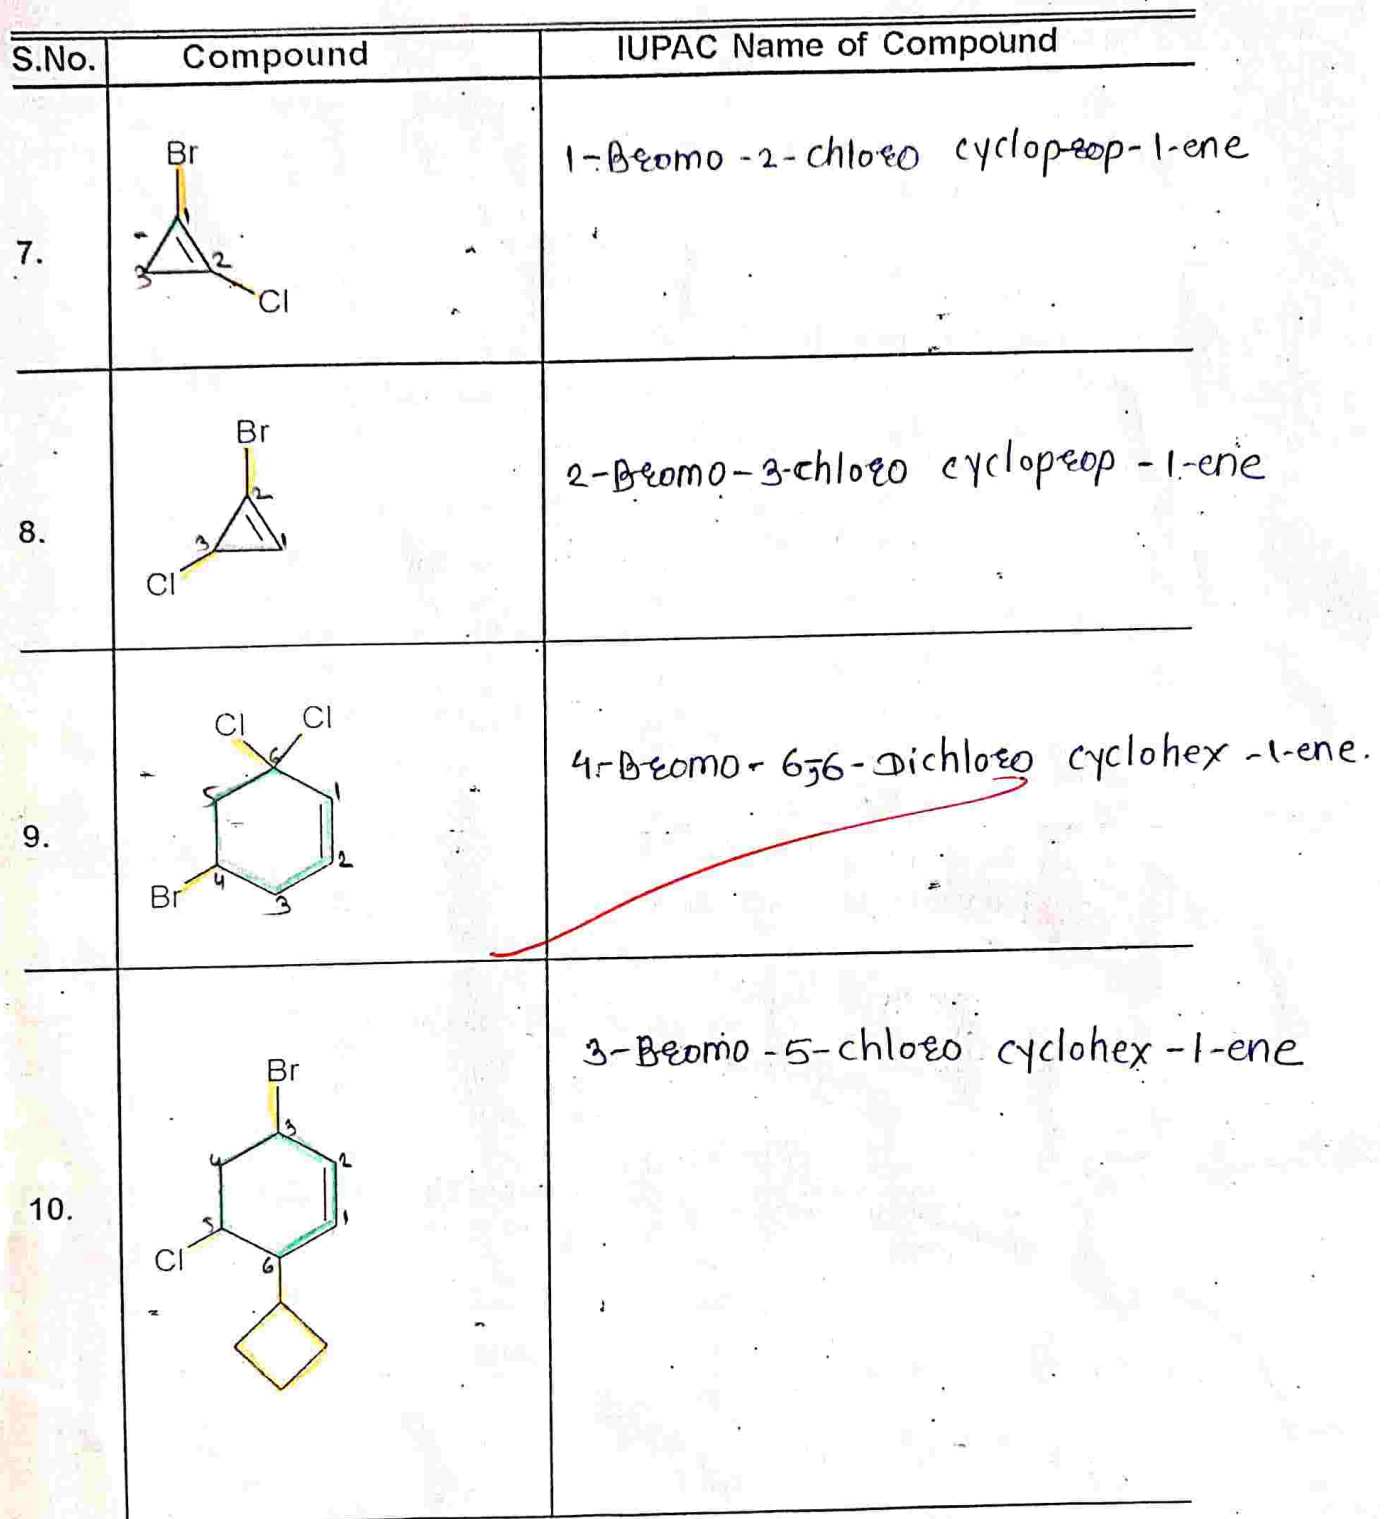 S.No. Compound IUPAC Name of Compound
7.
Br
1
2
3
Cl
1-Bromo-2-chloro cycloprop-1-ene
8.
Br
2
3
1
Cl
2-Bromo-3-chloro cycloprop-1-ene
9.
Cl Cl
6
5 1
2
4
Br
3
4-Bromo-6,6-Dichloro cyclohex-1-ene.
10.
Br
3
4 2
5 1
Cl
6
3-Bromo-5-chloro cyclohex-1-ene